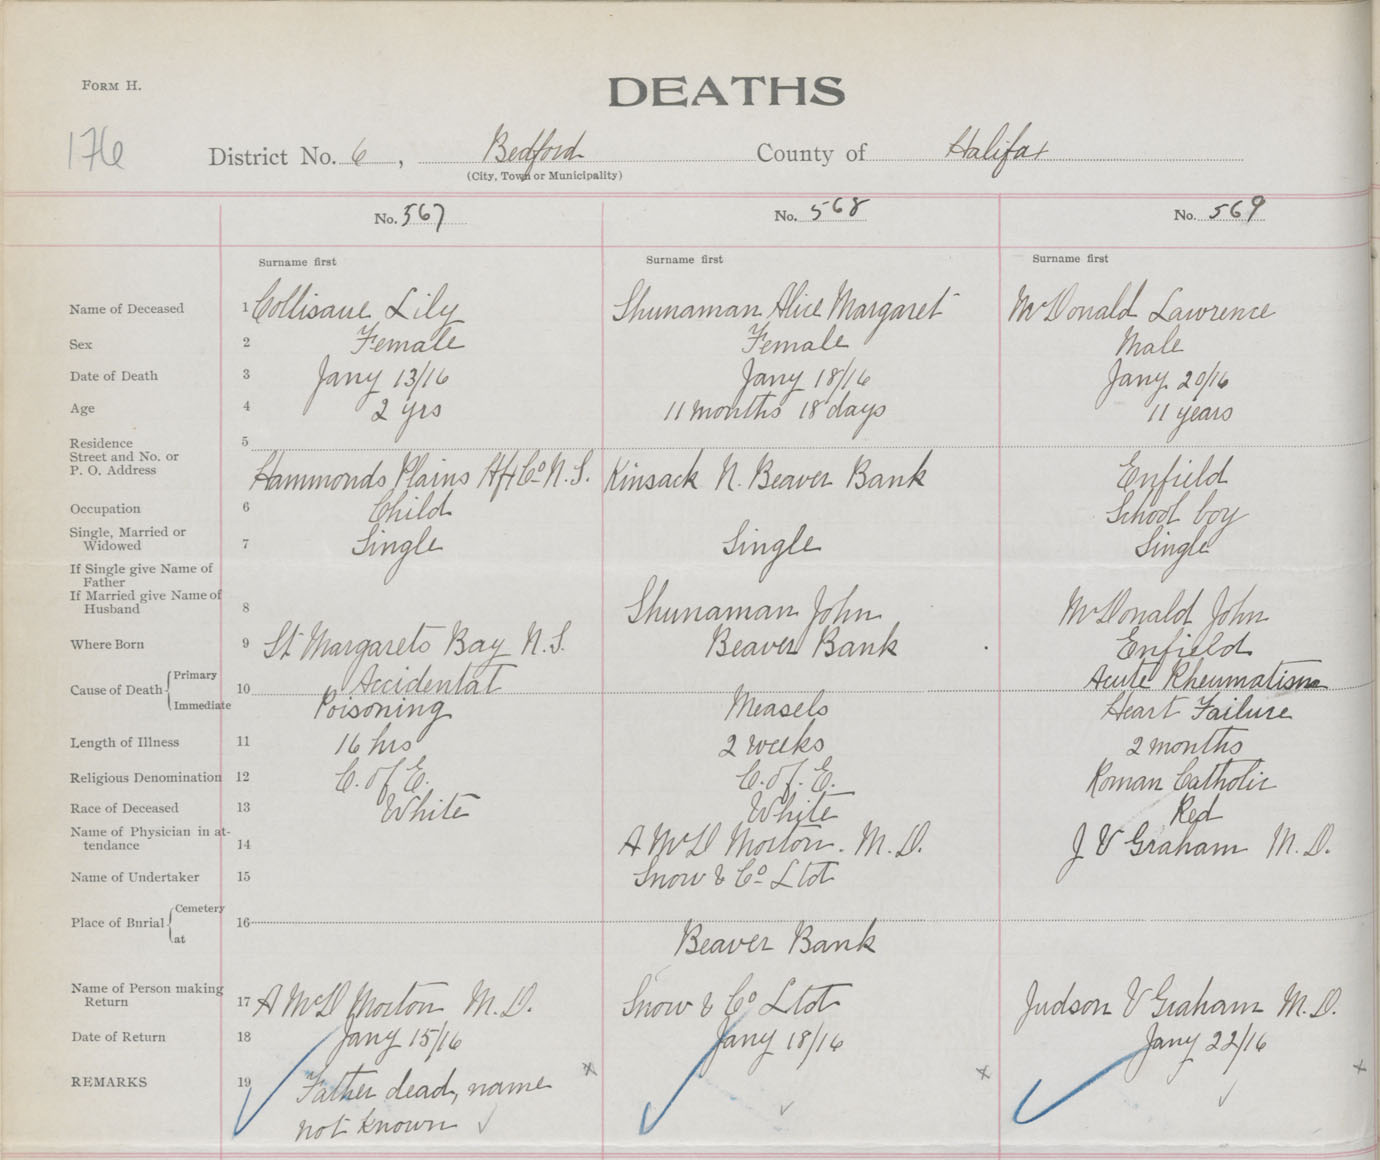 FORM H.
DEATHS
176
District No. 6, Bedford County of Halifax
(City, Town or Municipality)
No. 567 No. 568 No. 569
Surname first Surname first Surname first
Name of Deceased 1 Collisaue Lily Shunaman Alice Margaret McDonald Lawrence
Sex 2 Female Female Male
Date of Death 3 Jany 13/16 Jany 18/16 Jany 20/16
Age 4 2 yrs 11 months 18 days 11 years
Residence 5
Street and No. or
P. O. Address Hammonds Plains Hfx Co N.S. Kinsack N. Beaver Bank Enfield
Occupation 6 Child School boy
Single, Married or
Widowed 7 Single Single Single
If Single give Name of
Father
If Married give Name of
Husband 8 Shunaman John McDonald John
Where Born 9 St Margarets Bay N.S. Beaver Bank Enfield
Cause of Death Primary 10 Accidental Acute Rheumatism
Immediate Poisoning Measels Heart Failure
Length of Illness 11 16 hrs 2 weeks 2 months
Religious Denomination 12 C. of E. C. of. E. Roman Catholic
Race of Deceased 13 White White Red
Name of Physician in at-
tendance 14 A McD Morton. M.D. J V Graham M.D.
Name of Undertaker 15 Snow & Co Ltd
Place of Burial Cemetery 16
at Beaver Bank
Name of Person making
Return 17 A McD Morton M.D. Snow & Co Ltd Judson V Graham M.D.
Date of Return 18 Jany 15/16 Jany 18/16 Jany 22/16
REMARKS 19 Father dead, name
not known